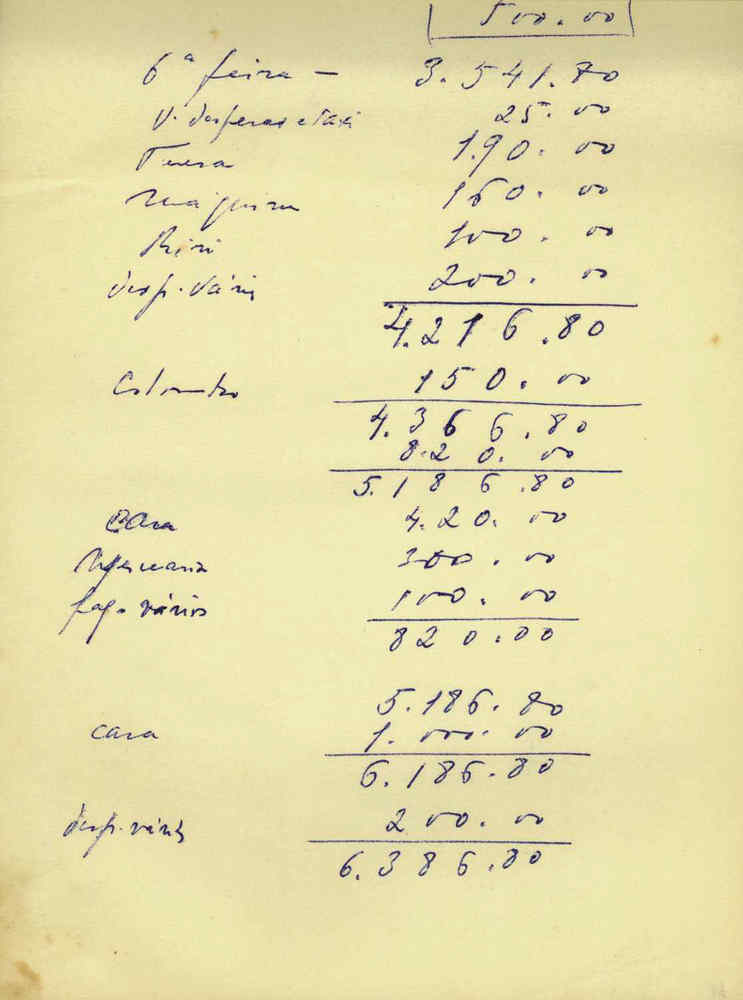 500.00
6ª feira — 3.541.80
V. despesas e Taxi 25.00
190.00
160.00
100.00
desp. várias 200.00
4.216.80
150.00
4.366.80
820.00
5.186.80
420.00
300.00
pag. vários 100.00
820.00
5.186.80
casa 1.000.00
6.186.80
desp. várias 200.00
6.386.80